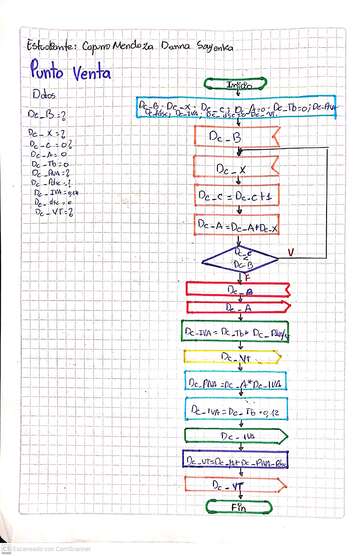 Estudiante: Capuro Mendoza Danna Sayonka
Punto Venta
Datos
Dc_B=?
Dc_X=?
Dc_C=0?
Dc_A=0
Dc_Tb=0
Dc_PIVA=?
Dc_Pdsc=?
Dc_IVA=0,12
Dc_dsc=0
Dc_VT=?
Inicio
Dc_B, Dc_X, Dc_C, Dc_A=0, Dc_Tb=0, Dc_PIVA
Dc_B
Dc_X
Dc_C=Dc_C+1
Dc_A=Dc_A+Dc_X
Dc_C
<
Dc_B
V
F
Dc_A
Dc_A
Dc_IVA=Dc_Tb*
Dc_VT
Dc_PIVA=Dc_A*Dc_IVA
Dc_IVA=Dc_Tb*0,12
Dc_IVA
Dc_VT
Fin
CS Escaneado con CamScanner